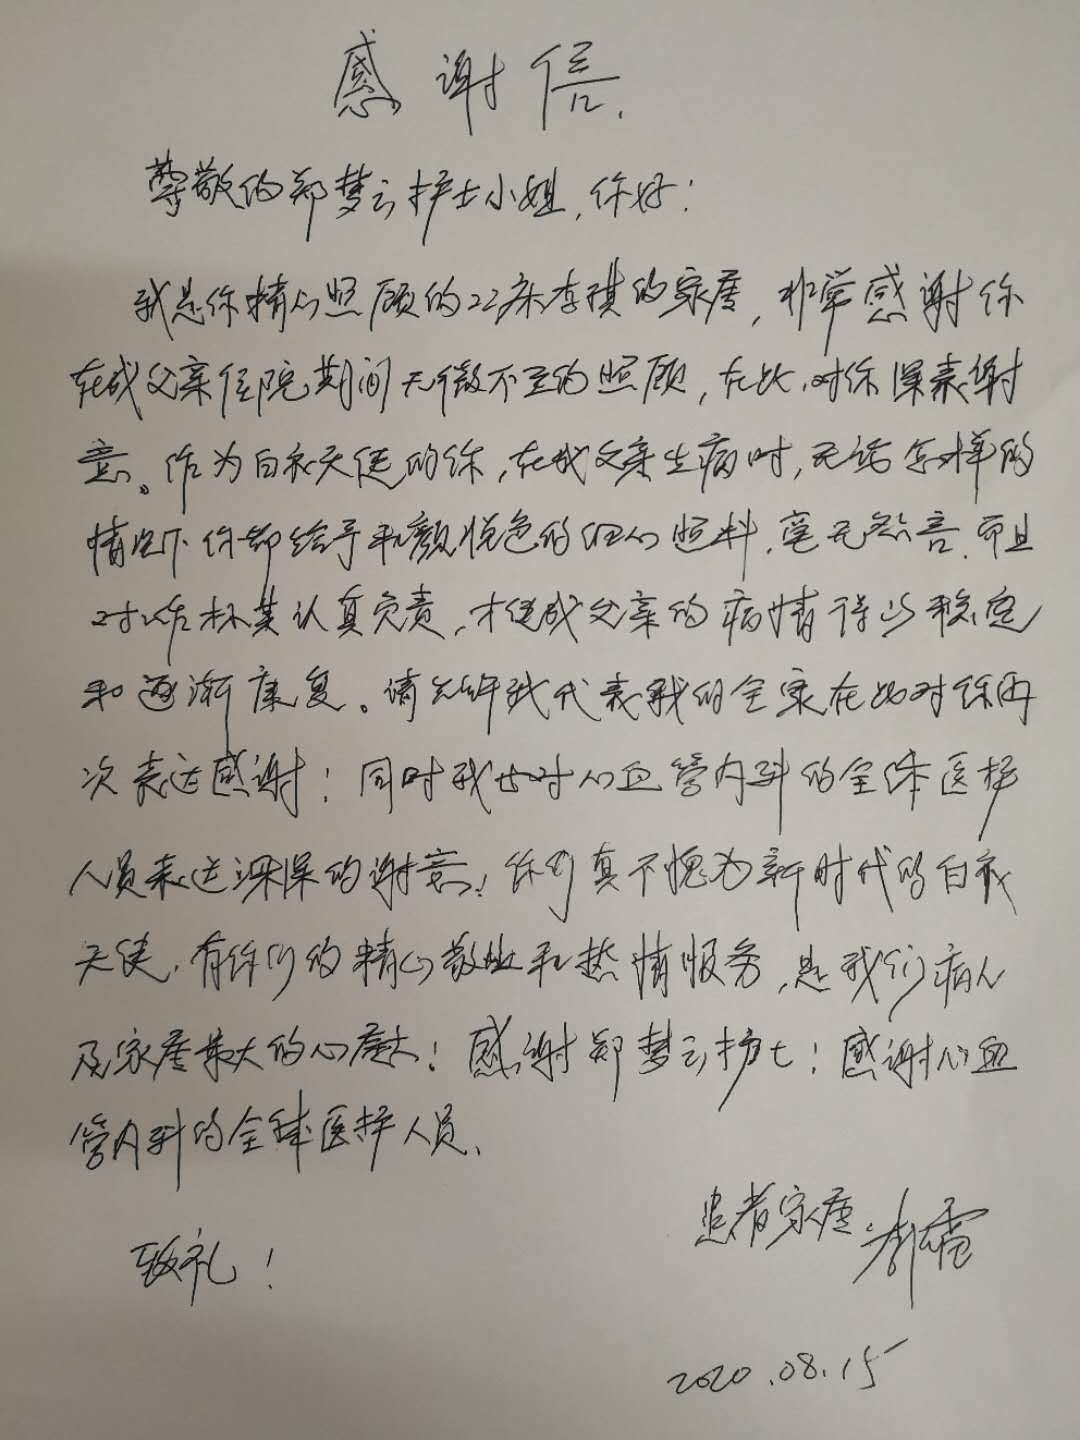 感谢信.
尊敬的郑梦云护士小姐,你好:
我是你精心照顾的22床李琪的家属,非常感谢你
在我父亲住院期间无微不至的照顾,在此,对你深表谢
意。作为白衣天使的你,在我父亲生病时,无论怎样的
情况下你都给予和颜悦色的细心照料,毫无怨言,而且
对工作极其认真负责,才使我父亲的病情得以稳定
和逐渐康复。请允许我代表我的全家在此对你再
次表达感谢!同时我也对心血管内科的全体医护
人员表达深深的谢意!你们真不愧为新时代的白衣
天使,有你们的精心敬业和热情服务,是我们病人
及家属最大的心愿!感谢郑梦云护士!感谢心血
管内科的全体医护人员、
患者家属
致礼!
2020.08.15